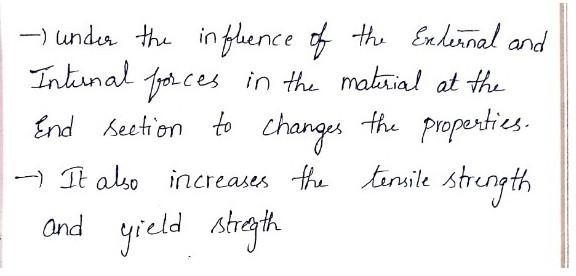 → under the influence of the External and
Internal forces in the material at the
End section to changes the properties.
→ It also increases the tensile strength
and yield stregth